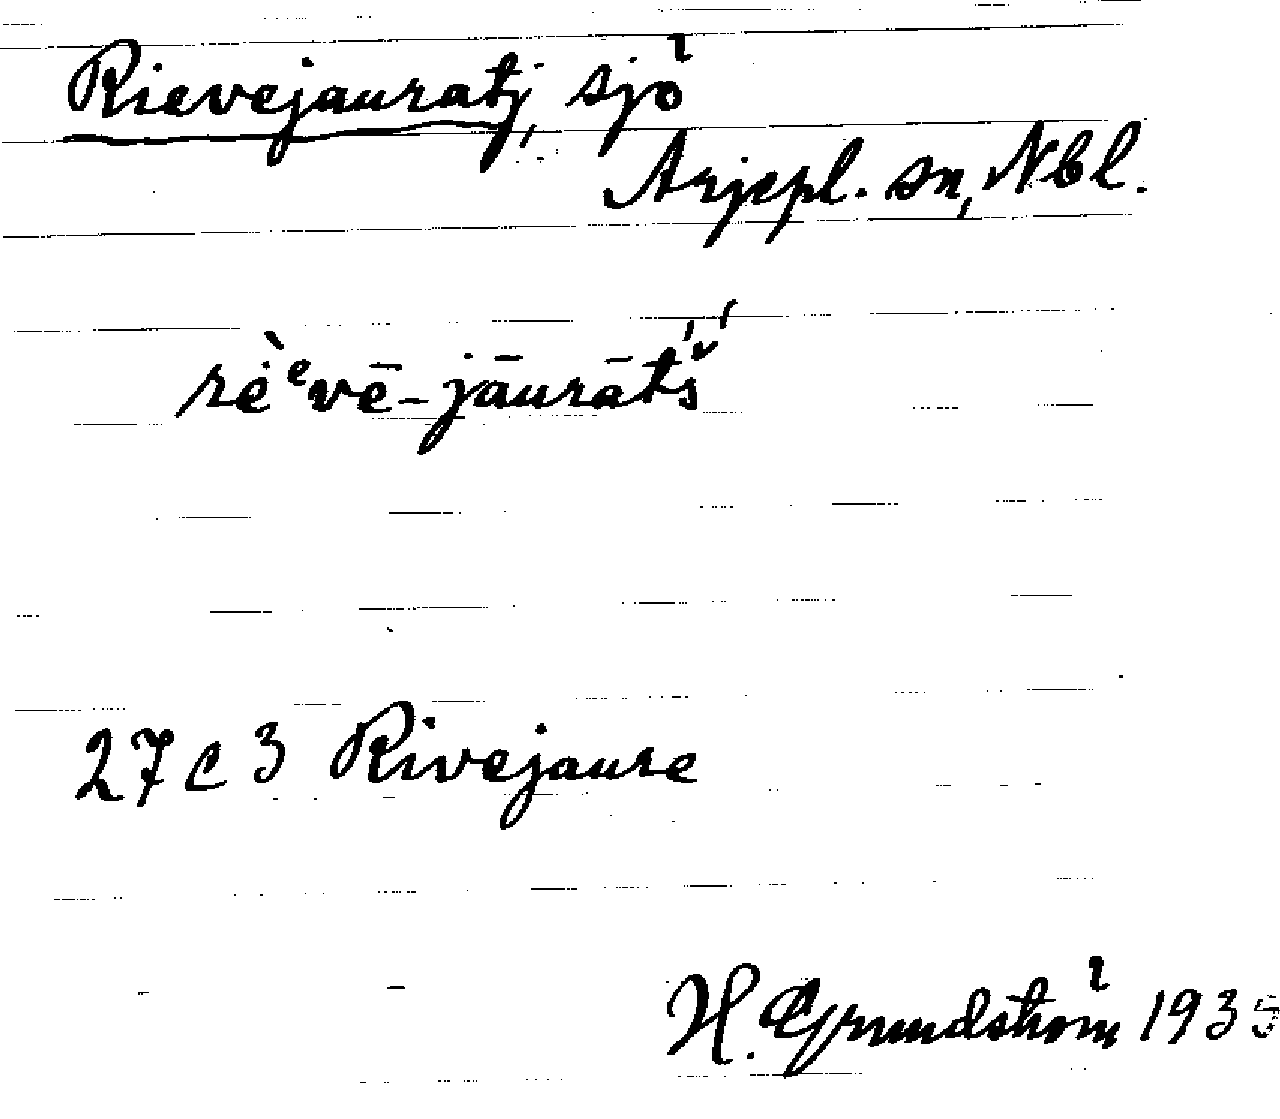 Rievejauratj, sjö
Arjepl. sn, Nbl.
rė̀ᵉvē-jāurātš́
27 C 3 Rivejaure
H. Grundström 1935